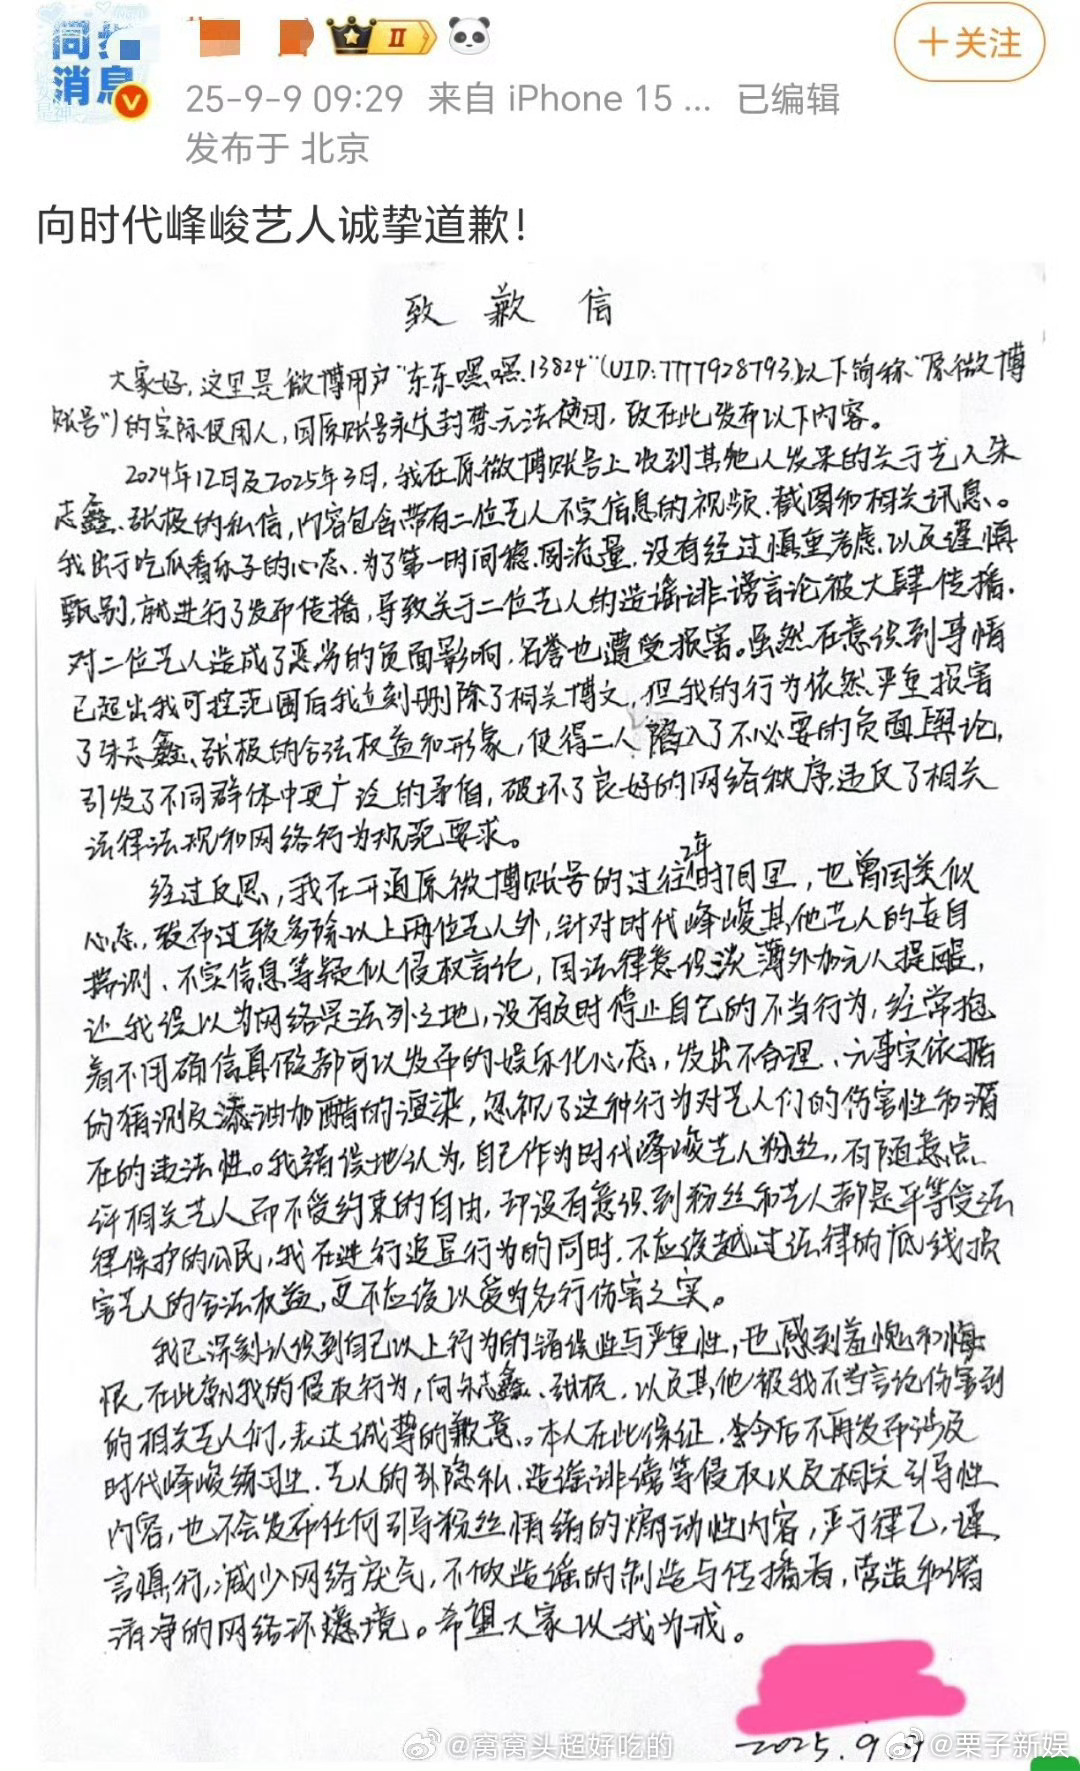 消息
Ⅱ
+关注
25-9-9 09:29 来自 iPhone 15 ... 已编辑
发布于 北京
向时代峰峻艺人诚挚道歉!
致歉信
大家好,这里是微博用户“东东嘿嘿13824”(UID:7777928793,以下简称“原微博
账号”)的实际使用人,因原账号永久封禁无法使用,故在此发布以下内容。
2024年12月及2025年3月,我在原微博账号上收到其他人发来的关于艺人朱
志鑫、张极的私信,内容包含带有二位艺人不实信息的视频、截图和相关讯息。
我出于吃瓜看乐子的心态,为了第一时间稳固流量,没有经过慎重考虑、以及谨慎
甄别,就进行了发布传播,导致关于二位艺人的造谣诽谤言论被大肆传播,
对二位艺人造成了恶劣的负面影响,名誉也遭受损害。虽然在意识到事情
已超出我可控范围后我立刻删除了相关博文,但我的行为依然严重损害
了朱志鑫、张极的合法权益和形象,使得二人陷入了不必要的负面舆论,
引发了不同群体中更广泛的矛盾,破坏了良好的网络秩序,违反了相关
法律法规和网络行为规范要求。
经过反思,我在开通原微博账号的过往2年时间里,也曾因类似
心态,发布过较多除以上两位艺人外,针对时代峰峻其他艺人的妄自
揣测、不实信息等疑似侵权言论,因法律意识淡薄外加无人提醒,
让我误以为网络是法外之地,没有及时停止自己的不当行为,经常抱
着不用确信真假都可以发布的娱乐化心态,发出不合理、无事实依据
的猜测及添油加醋的渲染,忽视了这种行为对艺人们的伤害性和潜
在的违法性。我错误地认为,自己作为时代峰峻艺人粉丝,有随意点
评相关艺人而不受约束的自由,却没有意识到粉丝和艺人都是平等受法
律保护的公民,我在进行追星行为的同时,不应该越过法律的底线损
害艺人的合法权益,更不应该以爱为名行伤害之实。
我已深刻认识到自己以上行为的错误性与严重性,也感到羞愧和悔
恨,在此就我的侵权行为,向朱志鑫、张极,以及其他被我不当言论伤害到
的相关艺人们,表达诚挚的歉意。本人在此保证,今后不再发布涉及
时代峰峻练习生、艺人的非隐私、造谣诽谤等侵权以及相关引导性
内容,也不会发布任何引导粉丝情绪的煽动性内容,严于律己,谨
言慎行,减少网络戾气,不做造谣的制造与传播者,营造和谐
清净的网络环境。希望大家以我为戒。
2025.9.9
@窝窝头超好吃的
@栗子新娱